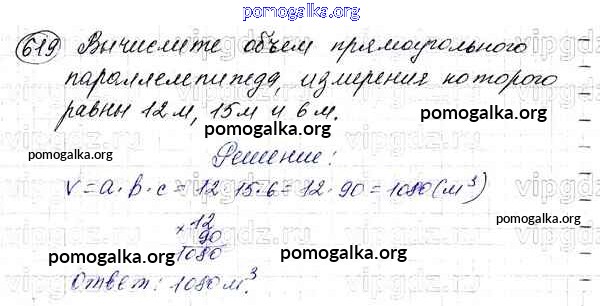 pomogalka.org
619 Вычислите объем прямоугольного
параллелепипеда, измерения которого
равны 12 м, 15 м и 6 м.
pomogalka.org
pomogalka.org
Решение:
pomogalka.org
V = a · b · c = 12 · 15 · 6 = 12 · 90 = 1080 (м³)
× 12
90
1080
pomogalka.org
pomogalka.org
Ответ: 1080 м³.
pomogalka.org